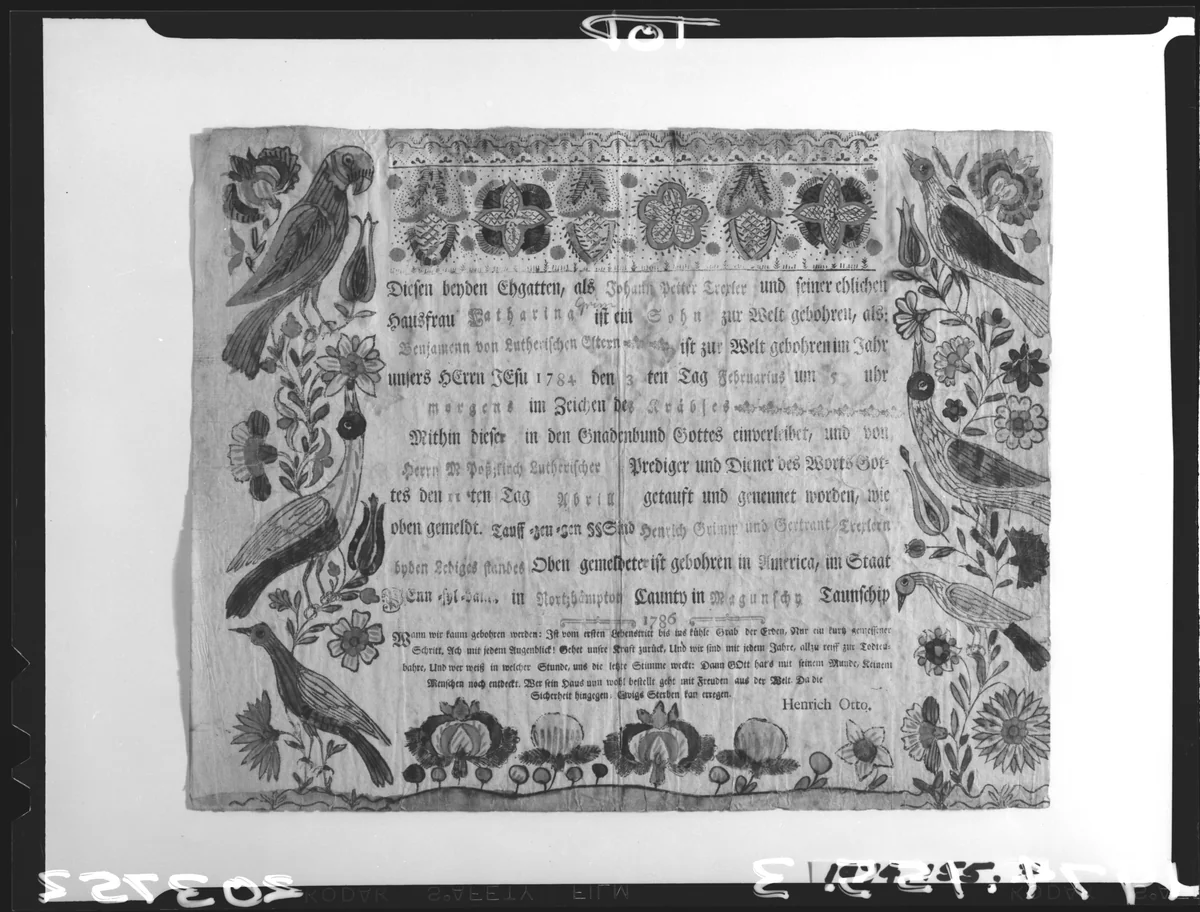 Diesen beyden Ehgatten, als Johann Peter Trexler und seiner ehlichen
Grim
Hausfrau Catharina ist ein Sohn zur Welt gebohren, als:
Benjamenn von Lutherischen Eltern ist zur Welt gebohren im Jahr
unsers HErrn JEsu 1784 den 3 ten Tag Februarius um 5 uhr
morgens im Zeichen des Kräbses
Mithin dieser in den Gnadenbund Gottes einverleibet, und von
Herrn Lutherischer Prediger und Diener des Worts Got-
tes den ten Tag Abrill getauft und genennet worden, wie
oben gemeldt. Tauff-zeu-gen Sind Henrich Grimm und Gertraut Trexlern
byden Lediges standes Oben gemeldeter ist gebohren in America, im Staat
in Northhämpton Caunty in Magunschy Taunschip
1786
Wann wir kaum gebohren werden: Ist vom ersten Lebenstritt bis ins kühle Grab der Erden, Nur ein kurtz gemessener
Schritt, Ach mit jedem Augenblick! Gehet unser Kraft zurück, Und wir sind mit jedem Jahre, allzu reiff zur Todten-
bahre, Und wer weiß in welcher Stunde, uns die letzte Stimme weckt: Dann GOtt hat's mit seinem Munde, Keinem
Menschen noch entdeckt. Wer sein Haus nun wohl bestellt geht mit Freuden aus der Welt. Da die
Sicherheit hingegen, Ewigs Sterben kan erregen.
Henrich Otto.
257302
KODAK SAFETY FILM
KODAK